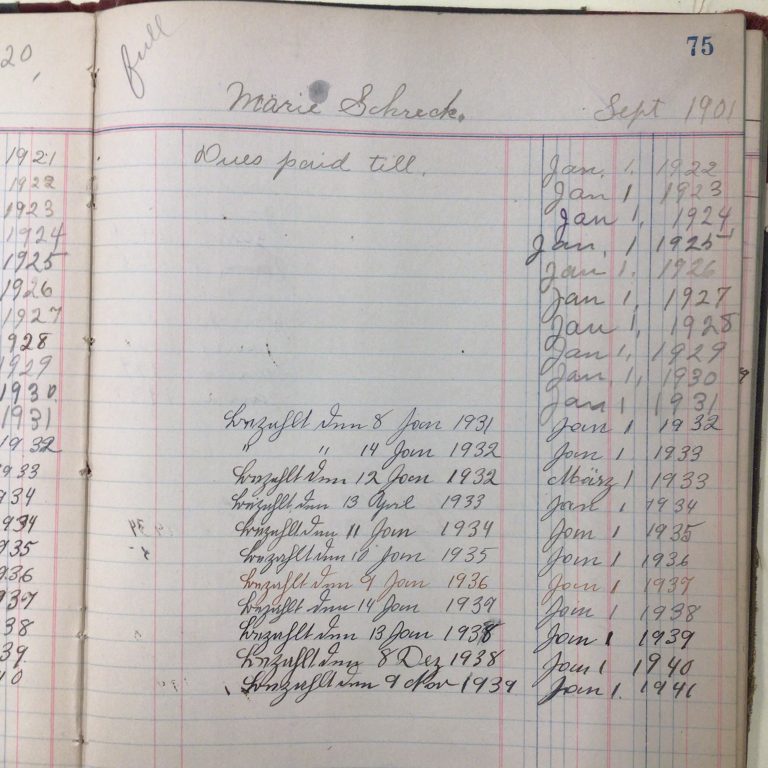 20
1921
1922
1923
1924
1925
1926
1927
1928
1929
1930
1931
1932
1933
1934
1934
1935
1936
1937
1938
1939
1940
full
75
Marie Schreck. Sept 1901
Dues paid till. Jan. 1, 1922
Jan 1 1923
Jan 1, 1924
Jan. 1 1925
Jan 1. 1926
Jan 1, 1927
Jan 1, 1928
Jan 1, 1929
Jan. 1, 1930
Jan 1 1931
bezahlt den 8 Jan 1931 Jan 1 1932
" " 14 Jan 1932 Jan 1 1933
bezahlt den 12 Jan 1932 März 1 1933
bezahlt den 13 April 1933 Jan 1 1934
bezahlt den 11 Jan 1934 Jan 1 1935
bezahlt den 10 Jan 1935 Jan 1 1936
bezahlt den 9 Jan 1936 Jan 1 1937
bezahlt den 14 Jan 1939 Jan 1 1938
bezahlt den 13 Jan 1938 Jan 1 1939
bezahlt den 8 Dez 1938 Jan 1 1940
bezahlt den 9 Nov 1939 Jan 1. 1941